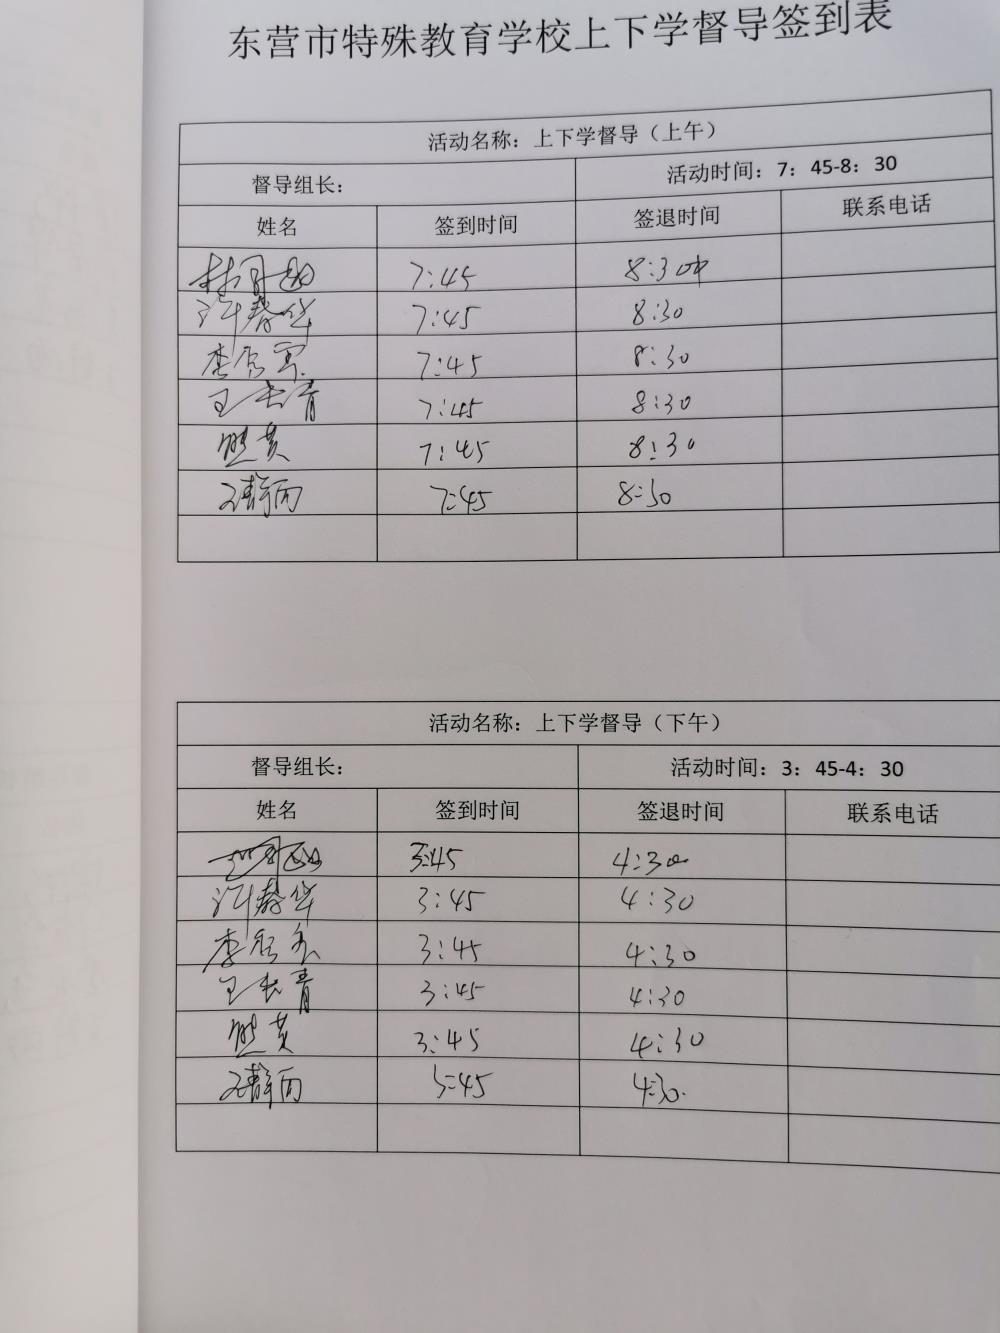 东营市特殊教育学校上下学督导签到表
活动名称：上下学督导（上午）
督导组长： 活动时间：7：45-8：30
姓名 签到时间 签退时间 联系电话
7:45 8:30
许春华 7:45 8:30
李 7:45 8:30
王长青 7:45 8:30
熊英 7:45 8:30
王静雨 7:45 8:30
活动名称：上下学督导（下午）
督导组长： 活动时间：3：45-4：30
姓名 签到时间 签退时间 联系电话
3:45 4:30
许春华 3:45 4:30
李 3:45 4:30
王长青 3:45 4:30
熊英 3:45 4:30
王静雨 3:45 4:30